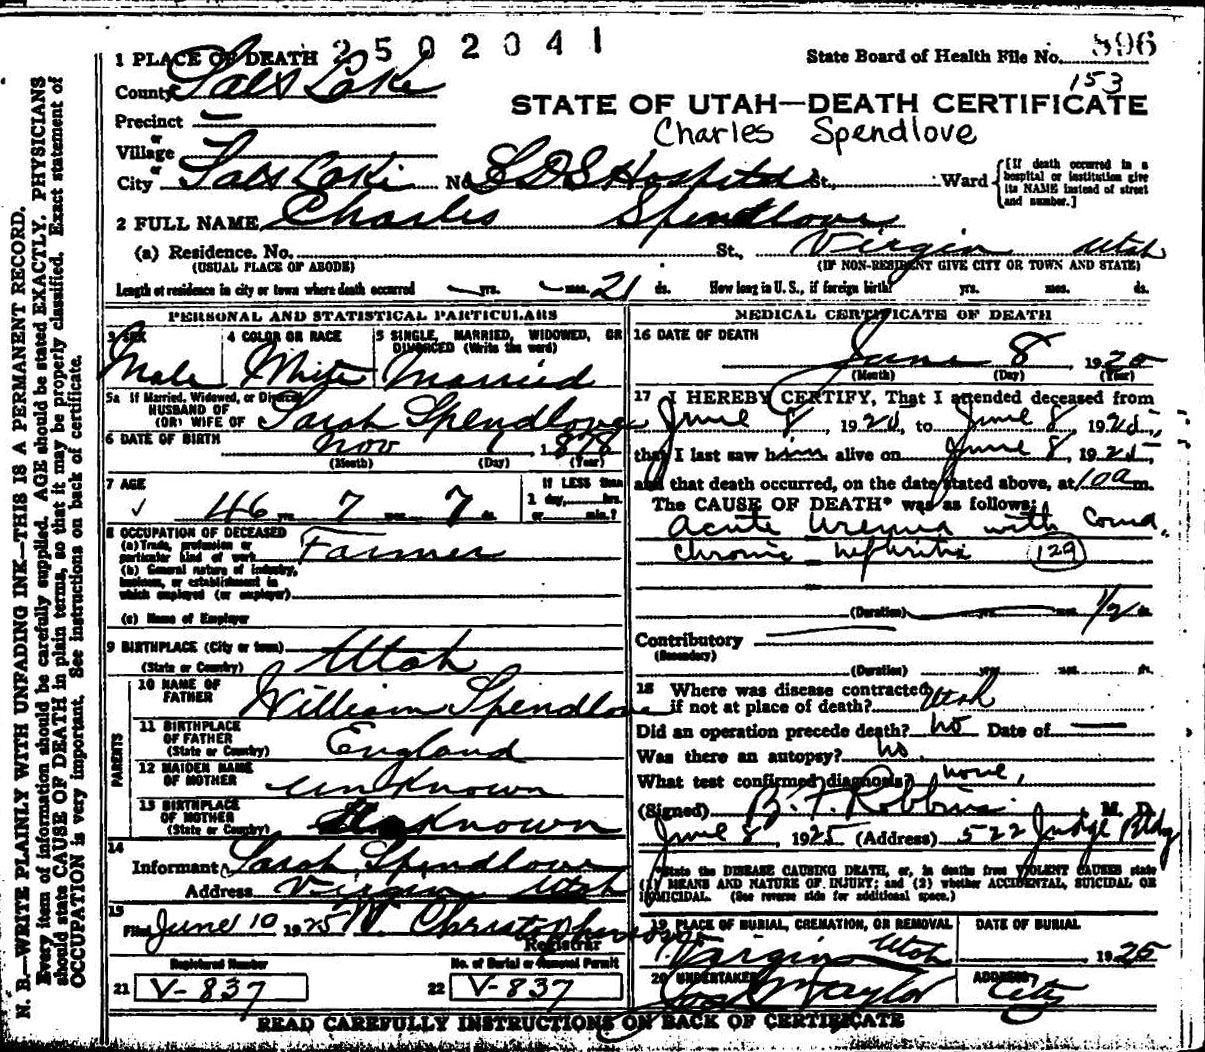 2502041
1 PLACE OF DEATH
State Board of Health File No. 896
153
County Salt Lake
STATE OF UTAH—DEATH CERTIFICATE
Precinct —
Charles Spendlove
or
Village
or
City Salt Lake No. LDS Hospital St., Ward
[If death occurred in a hospital or institution give its NAME instead of street and number.]
2 FULL NAME Charles Spendlove
(a) Residence. No. St., Virgin Utah
(USUAL PLACE OF ABODE) (IF NON-RESIDENT GIVE CITY OR TOWN AND STATE)
Length of residence in city or town where death occurred yrs. mos. 21 ds. How long in U. S., if foreign birth? yrs. mos. ds.
PERSONAL AND STATISTICAL PARTICULARS
3 SEX Male
4 COLOR OR RACE White
5 SINGLE, MARRIED, WIDOWED, OR DIVORCED (Write the word) Married
5a If Married, Widowed, or Divorced
HUSBAND OF
(OR) WIFE OF Sarah Spendlove
6 DATE OF BIRTH Nov 1 1878
(Month) (Day) (Year)
7 AGE 46 yrs. 7 mos. 7 ds.
If LESS than 1 day, hrs. or min.?
8 OCCUPATION OF DECEASED
(a) Trade, profession or particular kind of work Farmer
(b) General nature of industry, business, or establishment in which employed (or employer)
(c) Name of Employer
9 BIRTHPLACE (City or town)
(State or Country) Utah
PARENTS
10 NAME OF FATHER William Spendlove
11 BIRTHPLACE OF FATHER (State or Country) England
12 MAIDEN NAME OF MOTHER Unknown
13 BIRTHPLACE OF MOTHER (State or Country) Unknown
14
Informant Sarah Spendlove
Address Virgin Utah
15
Filed June 10 1925
Registrar
Registered Number
21 V-837
No. of Burial or Removal Permit
22 V-837
MEDICAL CERTIFICATE OF DEATH
16 DATE OF DEATH
June 8 1925
(Month) (Day) (Year)
17 I HEREBY CERTIFY, That I attended deceased from
June 8, 1925, to June 8, 1925,
that I last saw him alive on June 8, 1925,
and that death occurred, on the date stated above, at 10 a m.
The CAUSE OF DEATH* was as follows:
acute uremia with coma.
chronic nephritis 129
(Duration) yrs. mos. 1/2 ds.
Contributory
(Secondary)
(Duration) yrs. mos. ds.
18 Where was disease contracted
if not at place of death? Utah
Did an operation precede death? no Date of —
Was there an autopsy? no.
What test confirmed diagnosis? none,
(Signed) B. F. Robbins M. D.
June 8, 1925 (Address) 522 Judge Bldg
*State the DISEASE CAUSING DEATH, or, in deaths from VIOLENT CAUSES state
(1) MEANS AND NATURE OF INJURY; and (2) whether ACCIDENTAL, SUICIDAL OR
HOMICIDAL. (See reverse side for additional space.)
19 PLACE OF BURIAL, CREMATION, OR REMOVAL
Virgin Utah
DATE OF BURIAL
1925
20 UNDERTAKER
Taylor
ADDRESS
City
READ CAREFULLY INSTRUCTIONS ON BACK OF CERTIFICATE
N. B.—WRITE PLAINLY WITH UNFADING INK—THIS IS A PERMANENT RECORD.
Every item of information should be carefully supplied. AGE should be stated EXACTLY. PHYSICIANS
should state CAUSE OF DEATH in plain terms, so that it may be properly classified. Exact statement of
OCCUPATION is very important. See instructions on back of certificate.